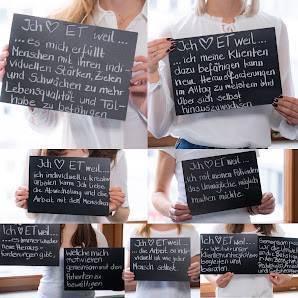 Ich ♡ ET weil ...
... es mich erfüllt
Menschen mit ihren indi-
viduellen Stärken, Zielen
und Schwächen zu mehr
Lebensqualität und Teil-
habe zu befähigen
Ich ♡ ET weil ...
... ich meine Klienten
dazu befähigen kann
neue Herausforderungen
im Alltag zu meistern und
über sich selbst
hinauszuwachsen
Ich ♡ ET weil...
ich individuell & kreativ
arbeiten kann. Ich liebe
die Abwechslung und die
Arbeit mit den Menschen
Ich ♡ ET weil...
... ich mit meinen Patienten
das Unmögliche möglich
machen möchte.
Ich ♡ ET weil...
... es immer wieder
neue Heraus-
forderungen gibt,
Welche mich
motivieren
gemeinsam mit den
Patienten zu
bewältigen
Ich ♡ ET weil...
... die Arbeit so indi-
viduell ist wie jeder
Mensch selbst.
Ich ♡ ET weil
... wir unsere
begleiten und
beraten
Gemeinsam